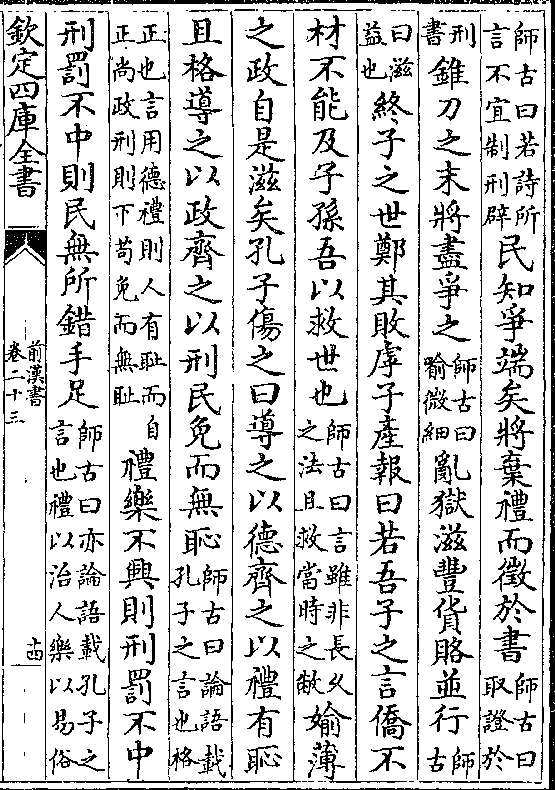 師古曰若詩所言不宜制刑辟民知爭端矣將棄禮而徵於書師古曰取證於
刑書錐刀之末將盡爭之師古曰喻微細亂獄滋豐貨賂並行師古
曰滋益也終子之世鄭其敗虖子產報曰若吾子之言僑不
材不能及子孫吾以救世也師古曰言雖非長久之法且救當時之敝媮薄
之政自是滋矣孔子傷之曰導之以德齊之以禮有恥
且格導之以政齊之以刑民免而無恥師古曰論語載孔子之言也格
正也言用德禮則人有恥而自正尚政刑則下苟免而無恥禮樂不興則刑罰不中
刑罰不中則民無所錯手足師古曰亦論語載孔子之言也禮以治人樂以易俗
欽定四庫全書
前漢書
卷二十三
十四